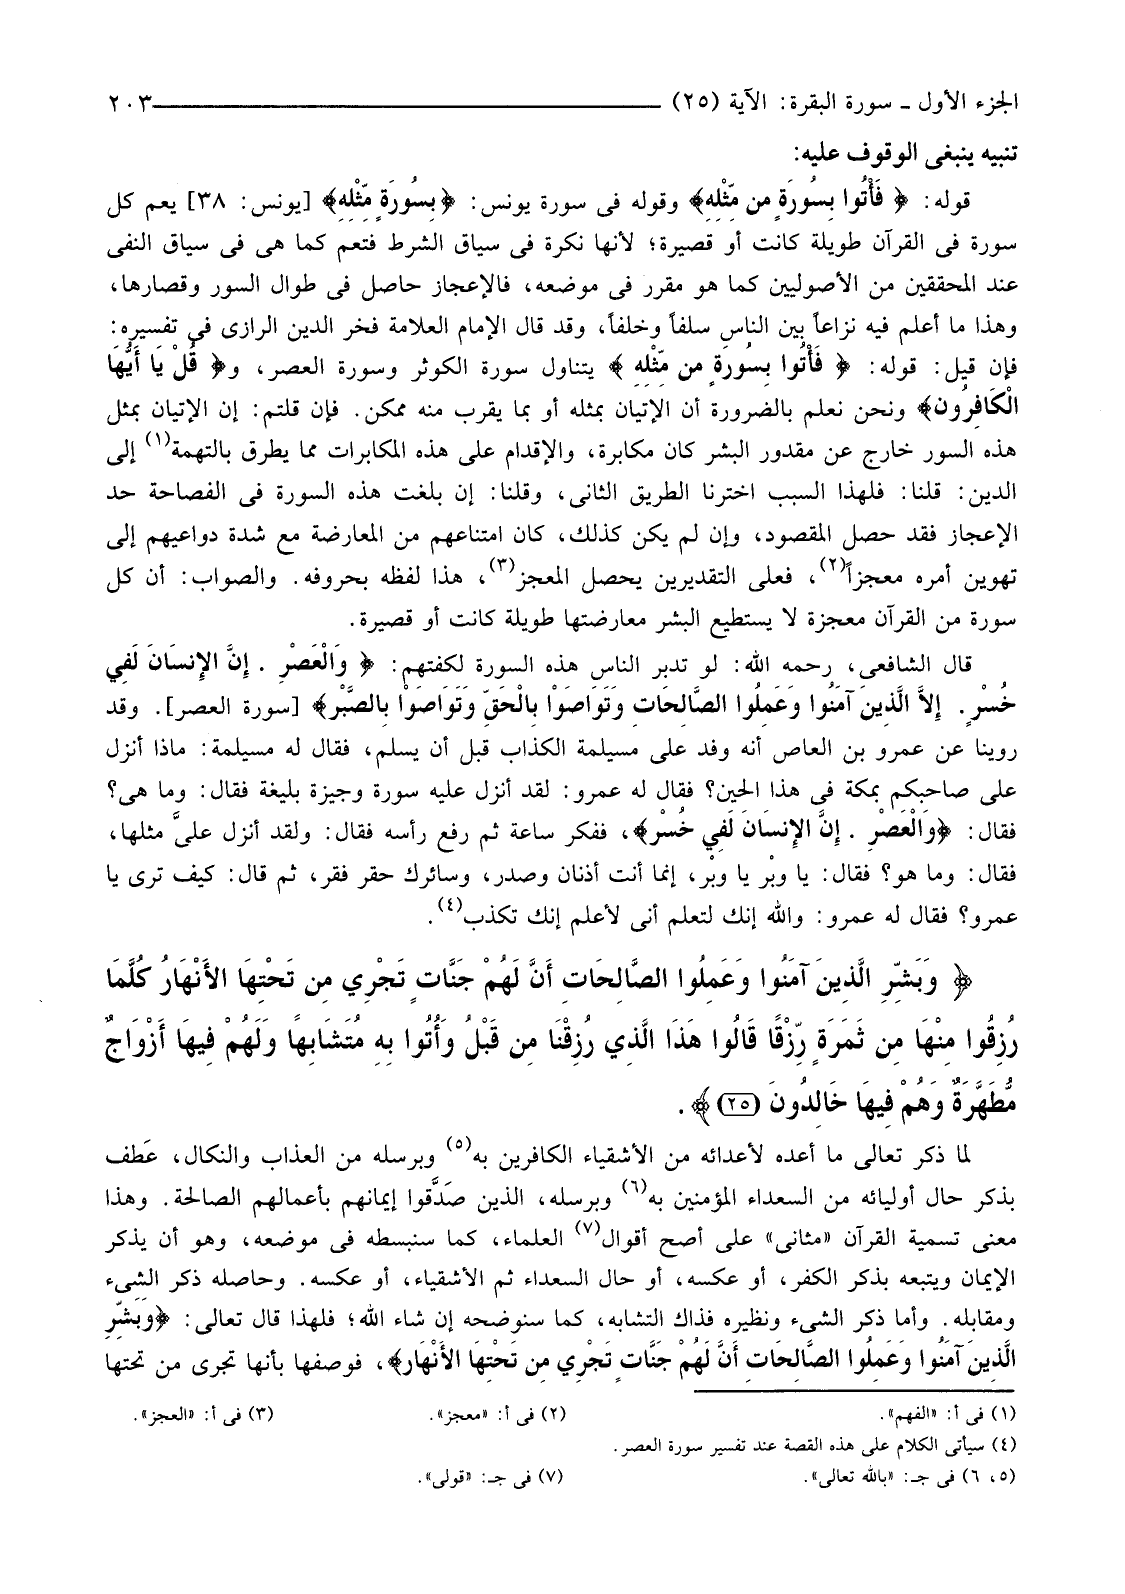 الجزء الأول ــ سورة البقرة: الآية (٢٥) ٢٠٣
تنبيه ينبغى الوقوف عليه:
قوله: ﴿ فَأْتُوا بِسُورَةٍ مِن مِّثْلِهِ﴾ وقوله فى سورة يونس: ﴿بِسُورَةٍ مِّثْلِهِ﴾ [يونس: ٣٨] يعم كل
سورة فى القرآن طويلة كانت أو قصيرة؛ لأنها نكرة فى سياق الشرط فتعم كما هى فى سياق النفى
عند المحققين من الأصوليين كما هو مقرر فى موضعه، فالإعجاز حاصل فى طوال السور وقصارها،
وهذا ما أعلم فيه نزاعاً بين الناس سلفاً وخلفاً، وقد قال الإمام العلامة فخر الدين الرازى فى تفسيره:
فإن قيل: قوله: ﴿ فَأْتُوا بِسُورَةٍ مِن مِّثْلِهِ ﴾ يتناول سورة الكوثر وسورة العصر، و﴿ قُلْ يَا أَيُّهَا
الْكَافِرُونَ﴾ ونحن نعلم بالضرورة أن الإتيان بمثله أو بما يقرب منه ممكن. فإن قلتم: إن الإتيان بمثل
هذه السور خارج عن مقدور البشر كان مكابرة، والإقدام على هذه المكابرات مما يطرق بالتهمة(١) إلى
الدين: قلنا: فلهذا السبب اخترنا الطريق الثانى، وقلنا: إن بلغت هذه السورة فى الفصاحة حد
الإعجاز فقد حصل المقصود، وإن لم يكن كذلك، كان امتناعهم من المعارضة مع شدة دواعيهم إلى
تهوين أمره معجزاً(٢)، فعلى التقديرين يحصل المعجز(٣)، هذا لفظه بحروفه. والصواب: أن كل
سورة من القرآن معجزة لا يستطيع البشر معارضتها طويلة كانت أو قصيرة.
قال الشافعى، رحمه الله: لو تدبر الناس هذه السورة لكفتهم: ﴿ وَالْعَصْرِ . إِنَّ الإِنسَانَ لَفِي
خُسْرٍ . إِلاَّ الَّذِينَ آمَنُوا وَعَمِلُوا الصَّالِحَاتِ وَتَوَاصَوْا بِالْحَقِّ وَتَوَاصَوْا بِالصَّبْرِ﴾ [سورة العصر]. وقد
روينا عن عمرو بن العاص أنه وفد على مسيلمة الكذاب قبل أن يسلم، فقال له مسيلمة: ماذا أنزل
على صاحبكم بمكة فى هذا الحين؟ فقال له عمرو: لقد أنزل عليه سورة وجيزة بليغة فقال: وما هى؟
فقال: ﴿وَالْعَصْرِ . إِنَّ الإِنسَانَ لَفِي خُسْرٍ﴾، ففكر ساعة ثم رفع رأسه فقال: ولقد أنزل علىَّ مثلها،
فقال: وما هو؟ فقال: يا وبْر يا وبْر، إنما أنت أذنان وصدر، وسائرك حقر فقر، ثم قال: كيف ترى يا
عمرو؟ فقال له عمرو: والله إنك لتعلم أنى لأعلم إنك تكذب(٤).
﴿ وَبَشِّرِ الَّذِينَ آمَنُوا وَعَمِلُوا الصَّالِحَاتِ أَنَّ لَهُمْ جَنَّاتٍ تَجْرِي مِن تَحْتِهَا الأَنْهَارُ كُلَّمَا
رُزِقُوا مِنْهَا مِن ثَمَرَةٍ رِّزْقًا قَالُوا هَذَا الَّذِي رُزِقْنَا مِن قَبْلُ وَأُتُوا بِهِ مُتَشَابِهًا وَلَهُمْ فِيهَا أَزْوَاجٌ
مُّطَهَّرَةٌ وَهُمْ فِيهَا خَالِدُونَ (٢٥)﴾ .
لما ذكر تعالى ما أعده لأعدائه من الأشقياء الكافرين به(٥) وبرسله من العذاب والنكال، عَطف
بذكر حال أوليائه من السعداء المؤمنين به(٦) وبرسله، الذين صَدَّقوا إيمانهم بأعمالهم الصالحة. وهذا
معنى تسمية القرآن «مثانى» على أصح أقوال(٧) العلماء، كما سنبسطه فى موضعه، وهو أن يذكر
الإيمان ويتبعه بذكر الكفر، أو عكسه، أو حال السعداء ثم الأشقياء، أو عكسه. وحاصله ذكر الشىء
ومقابله. وأما ذكر الشىء ونظيره فذاك التشابه، كما سنوضحه إن شاء الله؛ فلهذا قال تعالى: ﴿وَبَشِّرِ
الَّذِينَ آمَنُوا وَعَمِلُوا الصَّالِحَاتِ أَنَّ لَهُمْ جَنَّاتٍ تَجْرِي مِن تَحْتِهَا الأَنْهَارُ﴾، فوصفها بأنها تجرى من تحتها
(١) فى أ: «الفهم». (٢) فى أ: «معجز». (٣) فى أ: «العجز».
(٤) سيأتى الكلام على هذه القصة عند تفسير سورة العصر.
(٥، ٦) فى جـ: «بالله تعالى». (٧) فى جـ: «قولى».